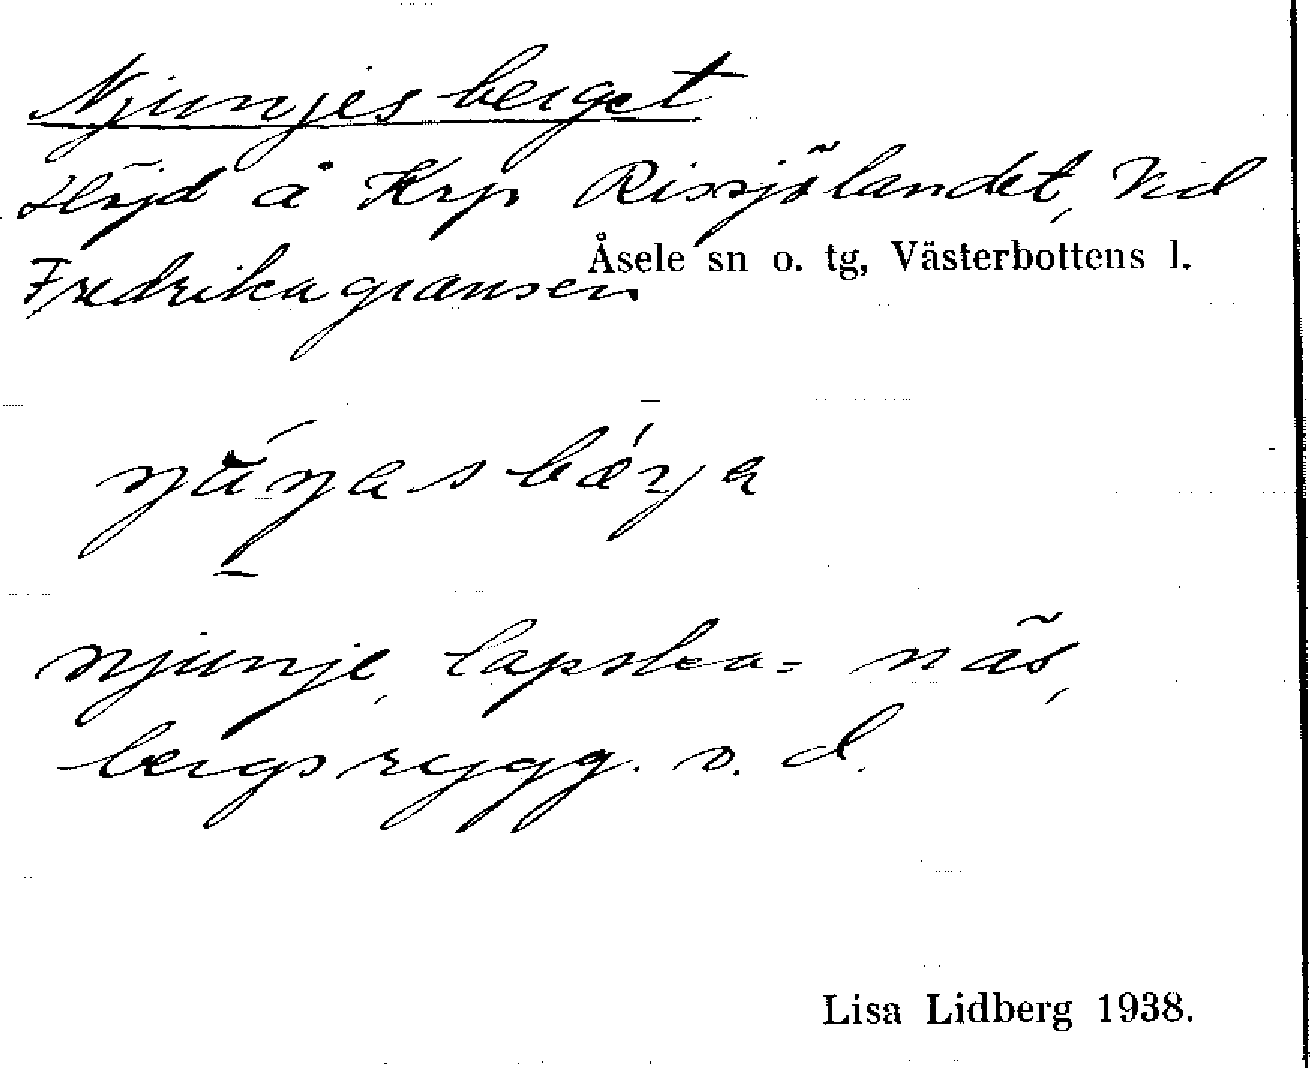 Njunjesberget
Höjd å Krp Rissjölandet, vid
Åsele sn o. tg, Västerbottens l.
Fredrikagränsen
njunje, lapska = näs,
bergsrygg. o. d.
Lisa Lidberg 1938.